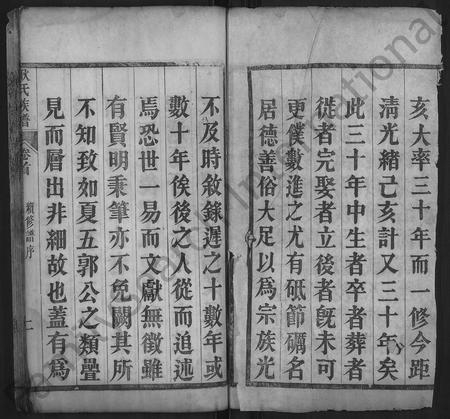 亥大率三十年而一修今距
淸光緖己亥計又三十年矣
此三十年中生者卒者葬者
徙者完娶者立後者旣未可
更僕數進之尤有砥節礪名
居德善俗大足以爲宗族光
不及時敘錄遲之十數年或
數十年俟後之人從而追述
焉恐世一易而文獻無徵雖
有賢明秉筆亦不免闕其所
不知致如夏五郭公之類疊
見而層出非細故也蓋有爲
氏族譜 卷首 續修譜序 二